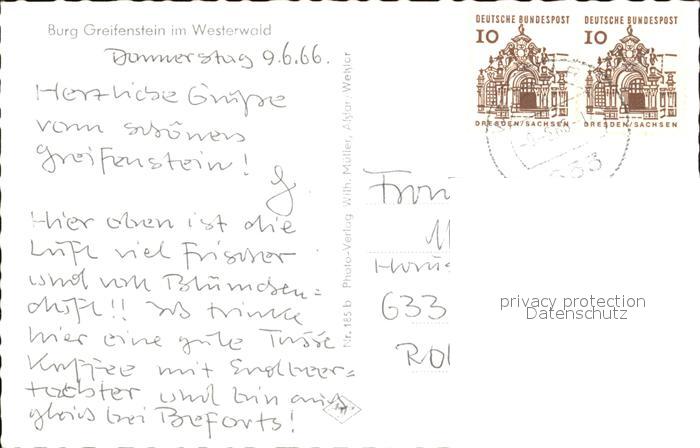 Burg Greifenstein im Westerwald
Donnerstag 9.6.66.
Herzliche Grüße
vom schönen
Greifenstein!
G.
Hier oben ist die
Luft viel frischer
und voll Blümchen=
duft!! Ich trinke
hier eine gute Tasse
Kaffee mit
tochter und bin auch
gleich bei Beforts!
Nr. 185 b Photo-Verlag Wilh. Müller, Asslar, Wetzlar
DEUTSCHE BUNDESPOST
10
DRESDEN/SACHSEN
DEUTSCHE BUNDESPOST
10
DRESDEN/SACHSEN
633
privacy protection
Datenschutz